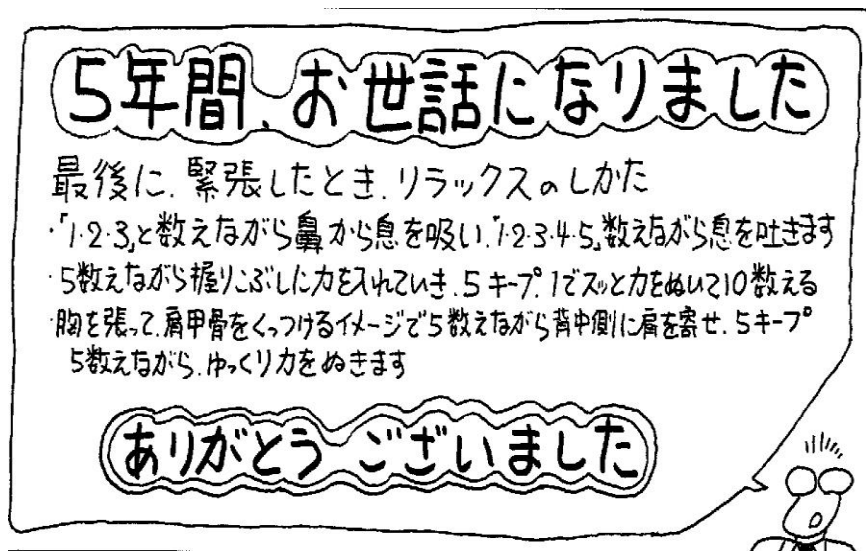 5年間、お世話になりました
最後に、緊張したとき、リラックスのしかた
・「1・2・3」と数えながら鼻から息を吸い、「1・2・3・4・5」数えながら息を吐きます
・5数えながら握りこぶしに力を入れていき、5キープ、1でスッと力をぬいて10数える
・胸を張って、肩甲骨をくっつけるイメージで5数えながら背中側に肩を寄せ、5キープ
5数えながら、ゆっくり力をぬきます
ありがとうございました